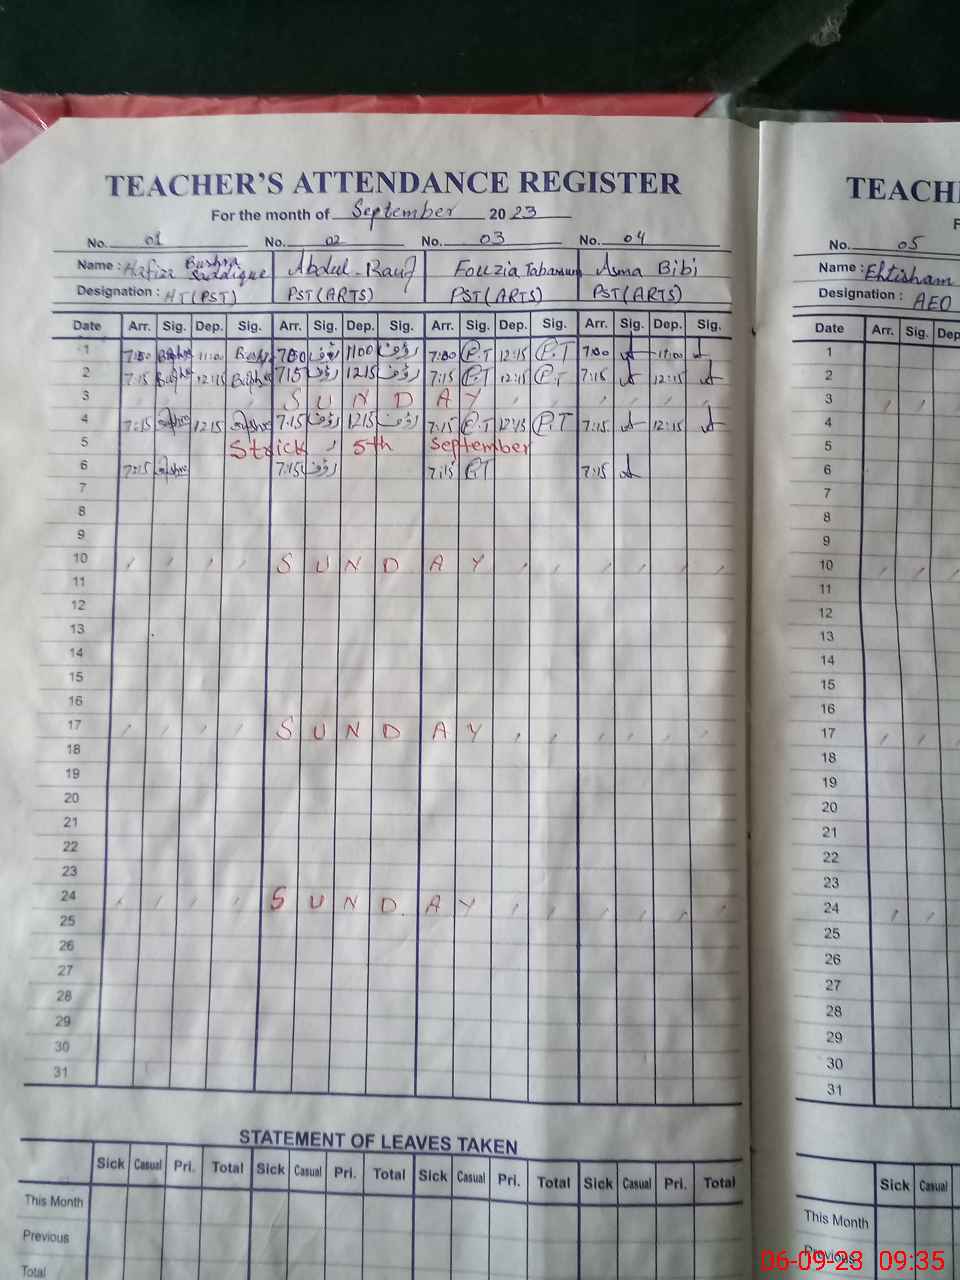 TEACHER'S ATTENDANCE REGISTER
For the month of September 2023
No. 01 No. 02 No. 03 No. 04
Name : Hafiza Bushra Siddique Abdul Rauf Fouzia Tabassum Asma Bibi
Designation : HT (PST) PST (ARTS) PST (ARTS) PST (ARTS)
Date Arr. Sig. Dep. Sig. Arr. Sig. Dep. Sig. Arr. Sig. Dep. Sig. Arr. Sig. Dep. Sig.
1 7:00 Bushra 11:00 Bushra 7:00 رؤف 11:00 رؤف 7:00 P.T 12:15 P.T 7:00 11:00
2 7:15 Bushra 12:15 Bushra 7:15 رؤف 12:15 رؤف 7:15 P.T 12:15 P.T 7:15 12:15
3 S U N D A Y
4 7:15 Bushra 12:15 Bushra 7:15 رؤف 12:15 رؤف 7:15 P.T 12:15 P.T 7:15 12:15
5 Strick 5th September
6 7:15 Bushra 7:15 رؤف 7:15 P.T 7:15
7
8
9
10 S U N D A Y
11
12
13
14
15
16
17 S U N D A Y
18
19
20
21
22
23
24 S U N D A Y
25
26
27
28
29
30
31
STATEMENT OF LEAVES TAKEN
Sick Casual Pri. Total Sick Casual Pri. Total Sick Casual Pri. Total Sick Casual Pri. Total
This Month
Previous
Total
TEACH
F
No. 05
Name : Ehtisham
Designation : AEO
Date Arr. Sig. Dep
1
2
3
4
5
6
7
8
9
10
11
12
13
14
15
16
17
18
19
20
21
22
23
24
25
26
27
28
29
30
31
Sick Casual
This Month
Previous
06-09-23 09:35